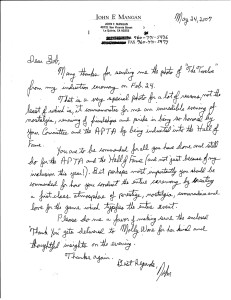 JOHN E MANGAN
JOHN E. MANGAN
May 24, 2009
Dear Bob,
Many thanks for sending me the photo of "The Twelve"
from my induction evening on Feb. 24.
That is a very special photo for a lot of reasons, not the
least of which is, it summarizes for me an incredible evening of
nostalgia, renewing of friendships and pride in being so honored by
your Committee and the APTA by being inducted into the Hall of
Fame.
You are to be commended for all you have done and still
do for the APTA and the Hall of Fame (and not just because of my
inclusion this year!). But perhaps most importantly you should be
commended for how you conduct the entire ceremony by creating
a first-class atmosphere of prestige, nostalgia, camaraderie and
love for the game which typifies the entire event.
Please do me a favor of making sure the enclosed
Thank You gets delivered to Molly Ware for her kind and
thoughtful insights on the evening.
Thanks again
Best Regards,
John